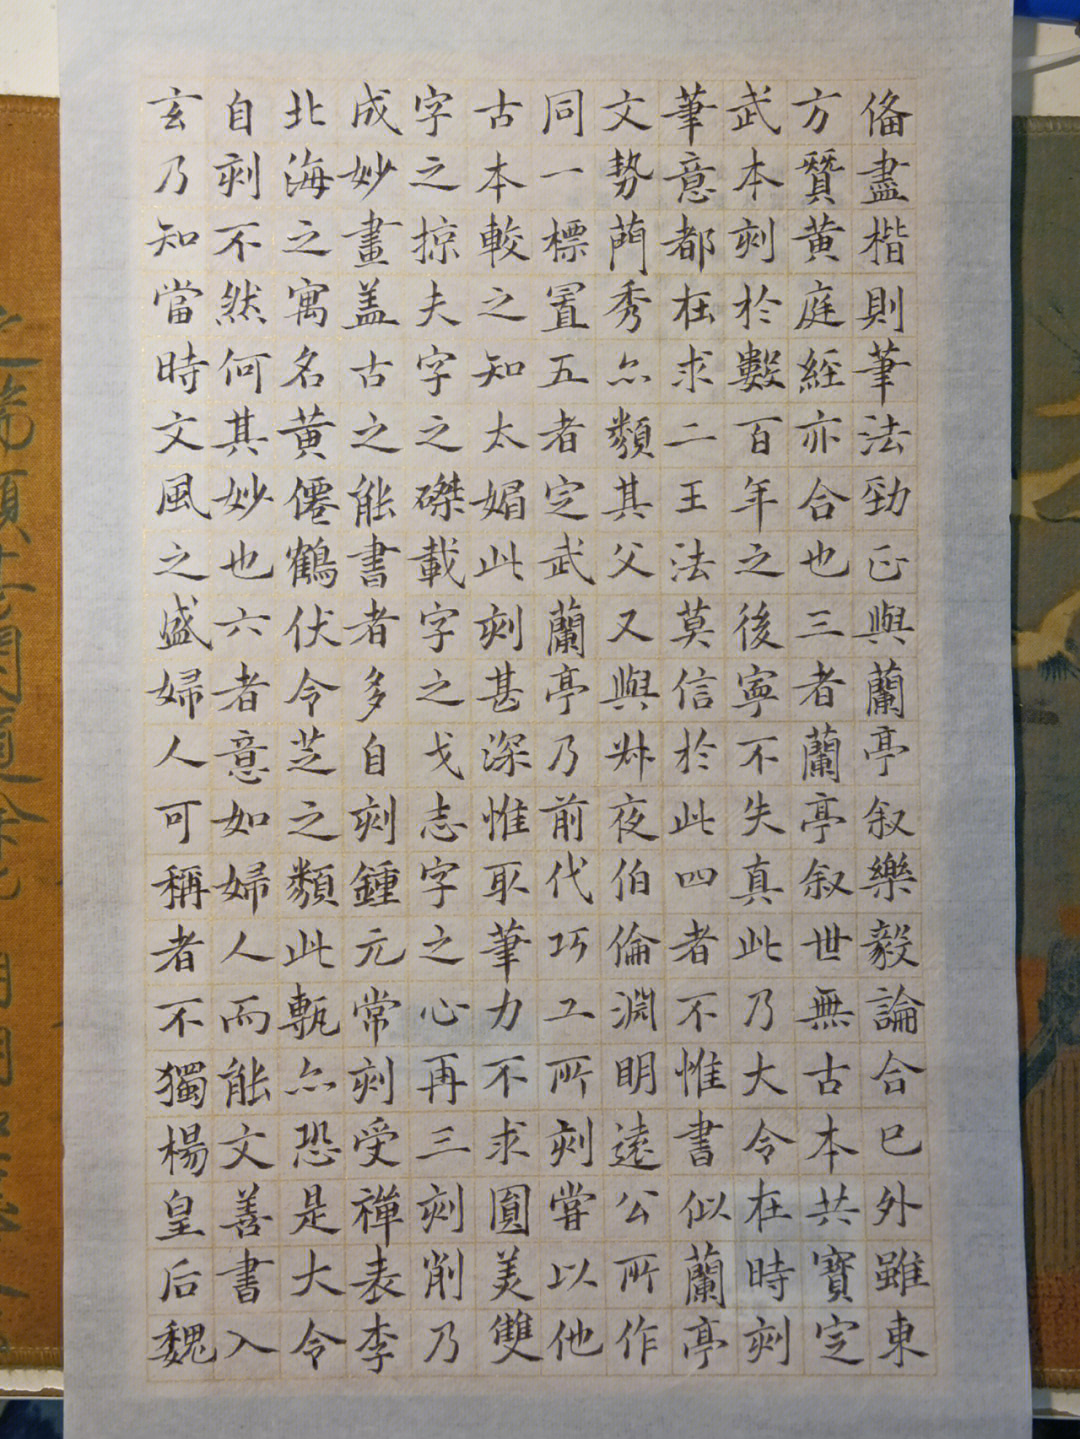 俻盡楷則筆法勁正與蘭亭叙樂毅論合已外雖東
方贊黄庭經亦合也三者蘭亭叙世無古本共寶定
武本刻於數百年之後寧不失真此乃大令在時刻
筆意都在求二王法莫信於此四者不惟書似蘭亭
文勢蕳秀亦類其父又與叔夜伯倫淵明遠公所作
同一標置五者定武蘭亭乃前代巧工所刻嘗以他
古本較之知太媚此刻甚深惟取筆力不求圓美雙
字之掠夫字之磔載字之戈志字之心再三刻削乃
成妙畫盖古之能書者多自刻鍾元常刻受禪表李
北海之寓名黄僊鶴伏令芝之類此甎亦恐是大令
自刻不然何其妙也六者意如婦人而能文善書入
玄乃知當時文風之盛婦人可稱者不獨楊皇后魏